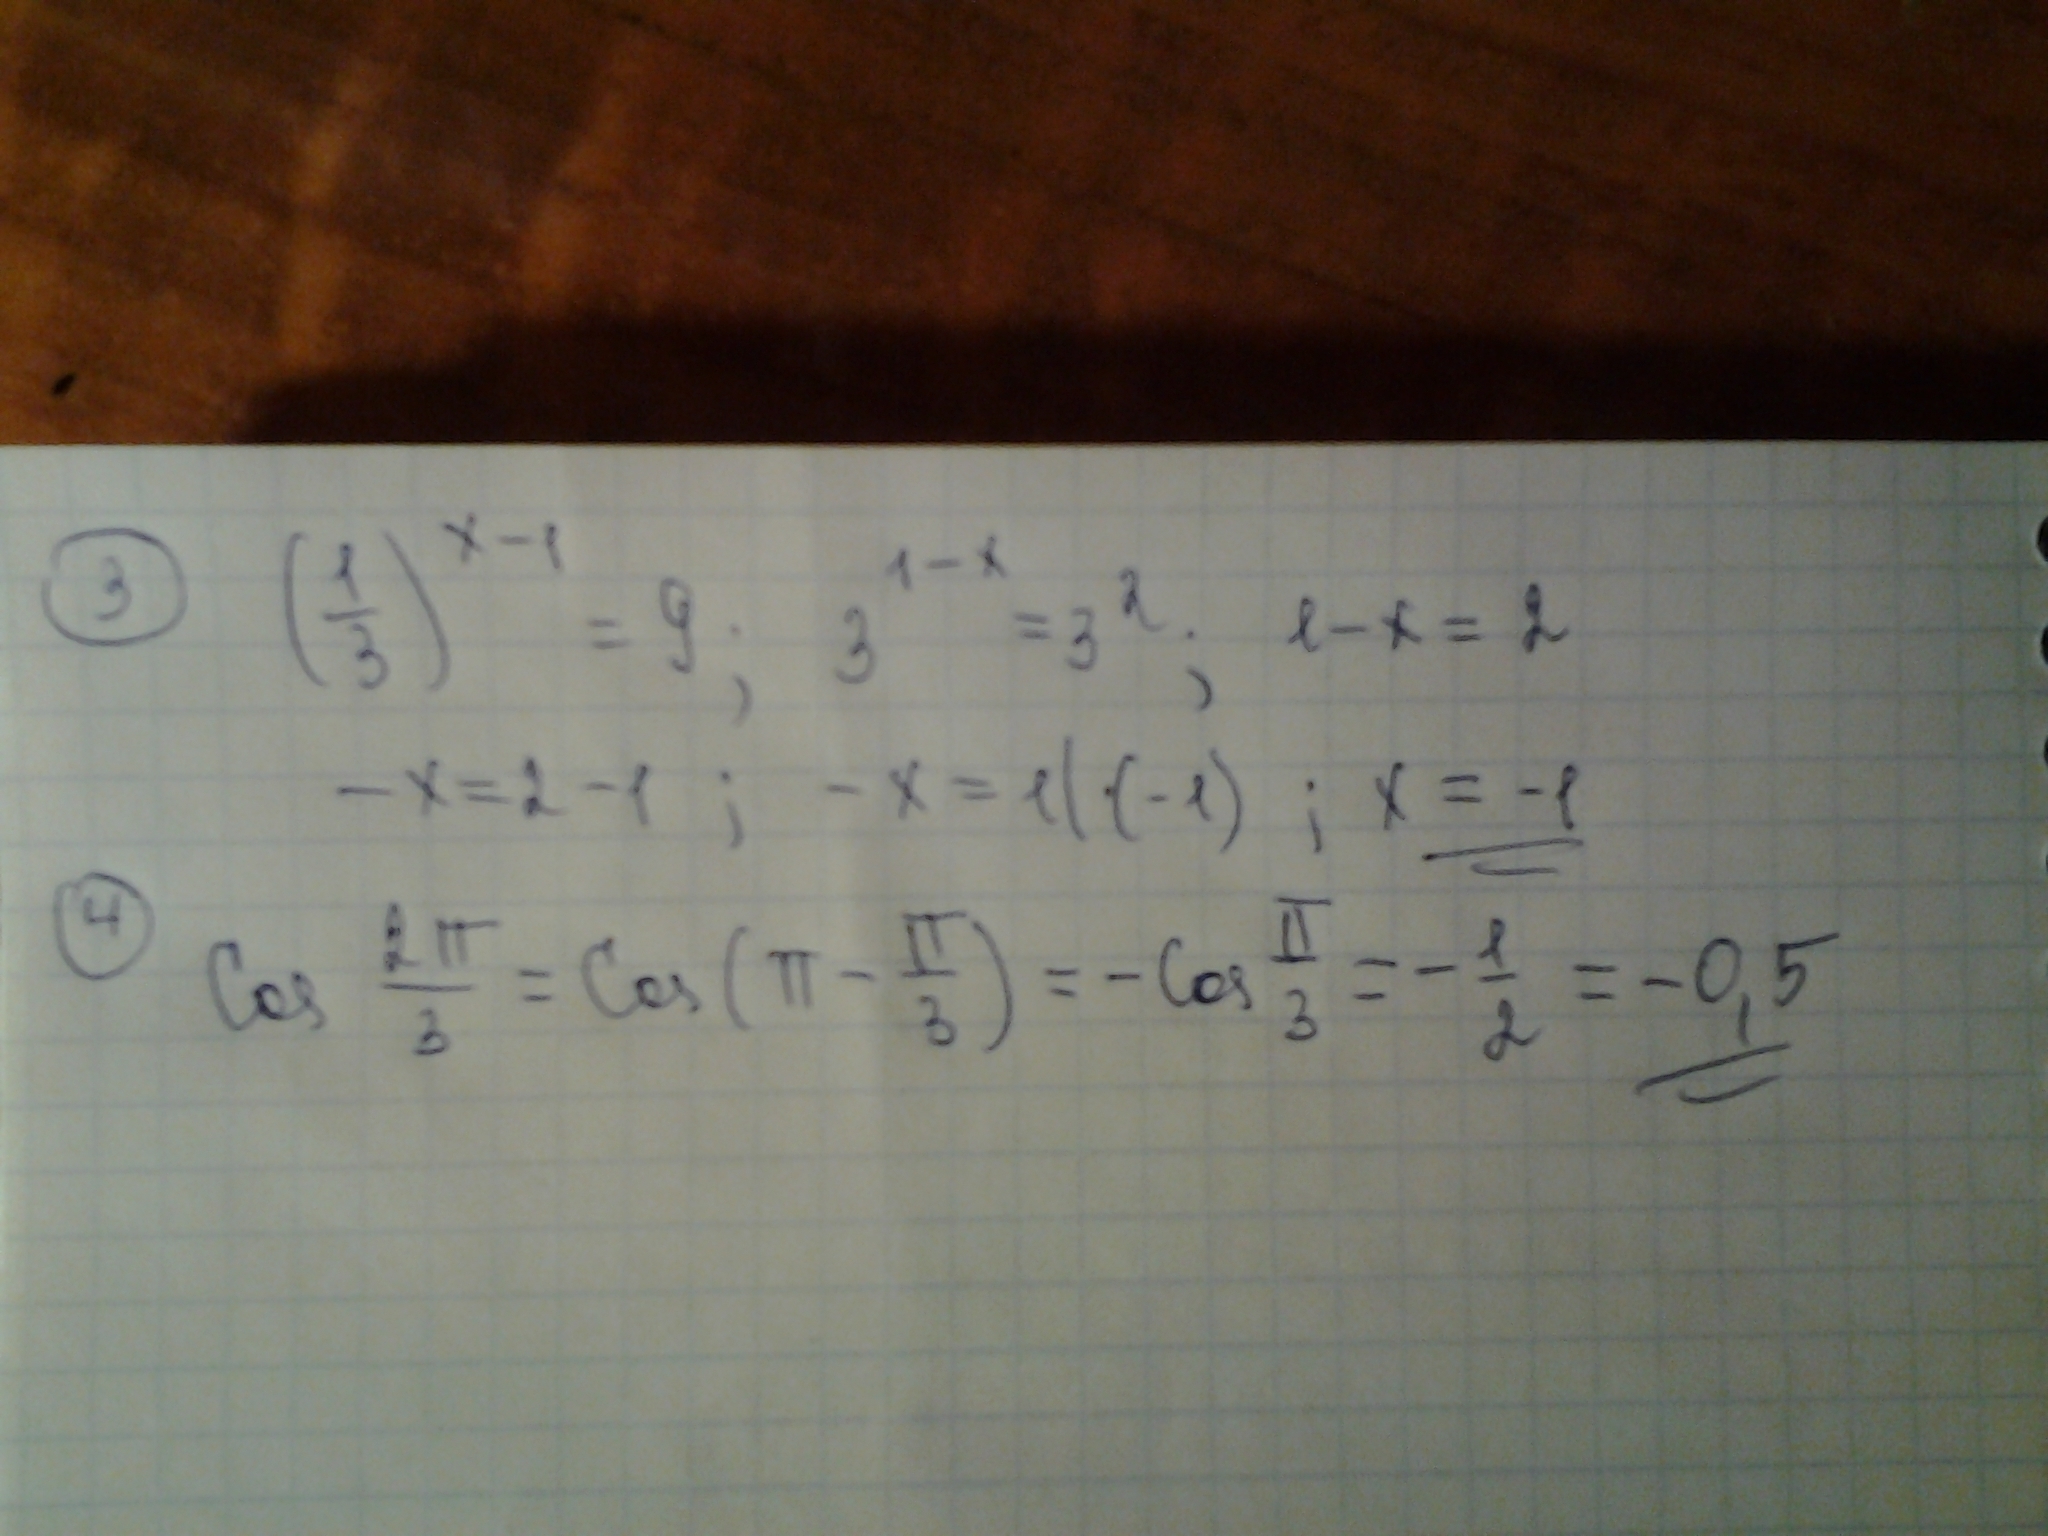 ③ (1/3)^(x-1) = 9; 3^(1-x) = 3^2; 1-x = 2
-x = 2-1; -x = 1|·(-1); x = -1
④ Cos 2π/3 = Cos(π - π/3) = -Cos π/3 = -1/2 = -0,5